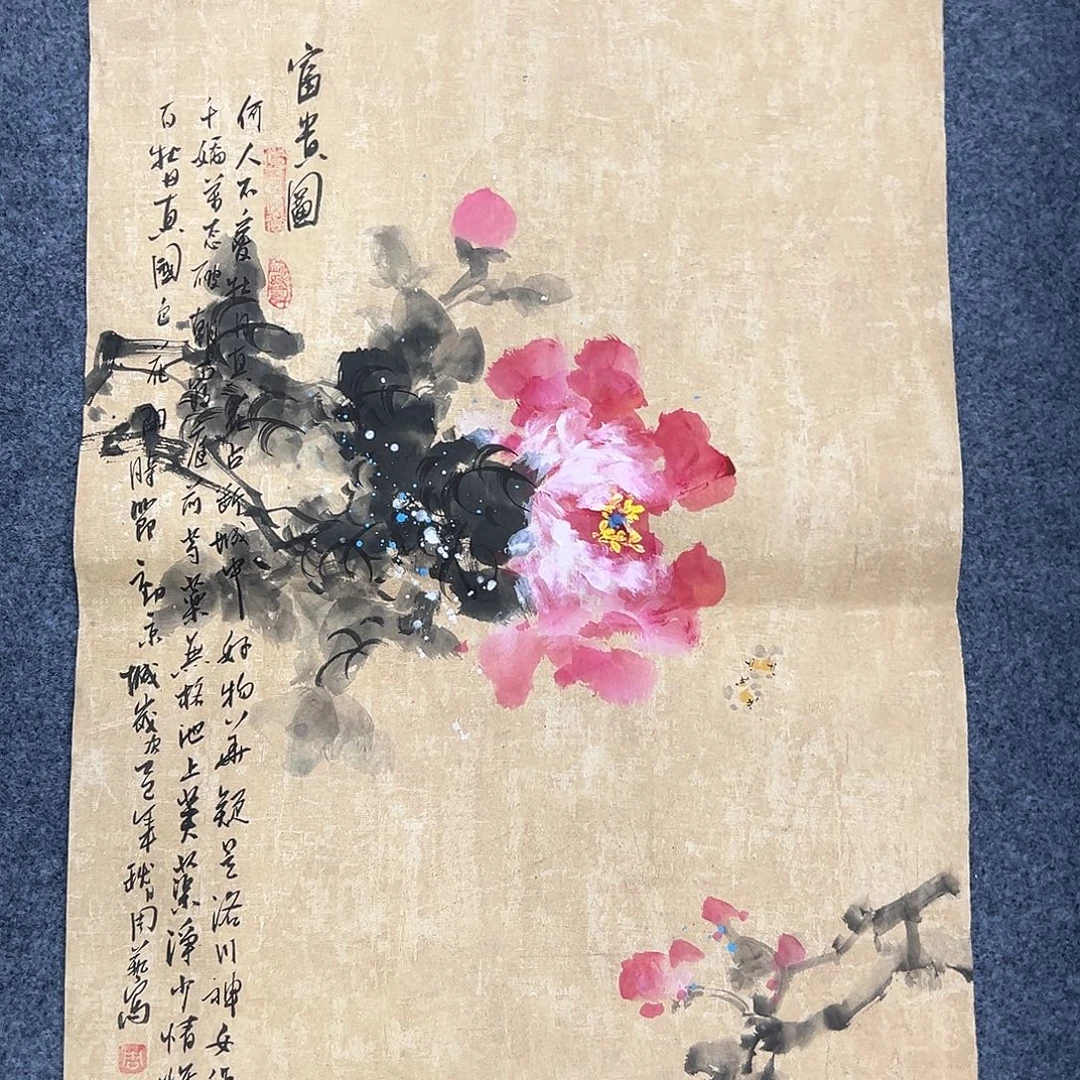 富貴圖
何人不愛牡丹占斷城中好物華疑是洛川神女
千嬌萬态破朝霞庭前芍藥無格池上芙蕖淨少情惟
有牡丹真國色花開時節動京城歲次年周藝寫
周